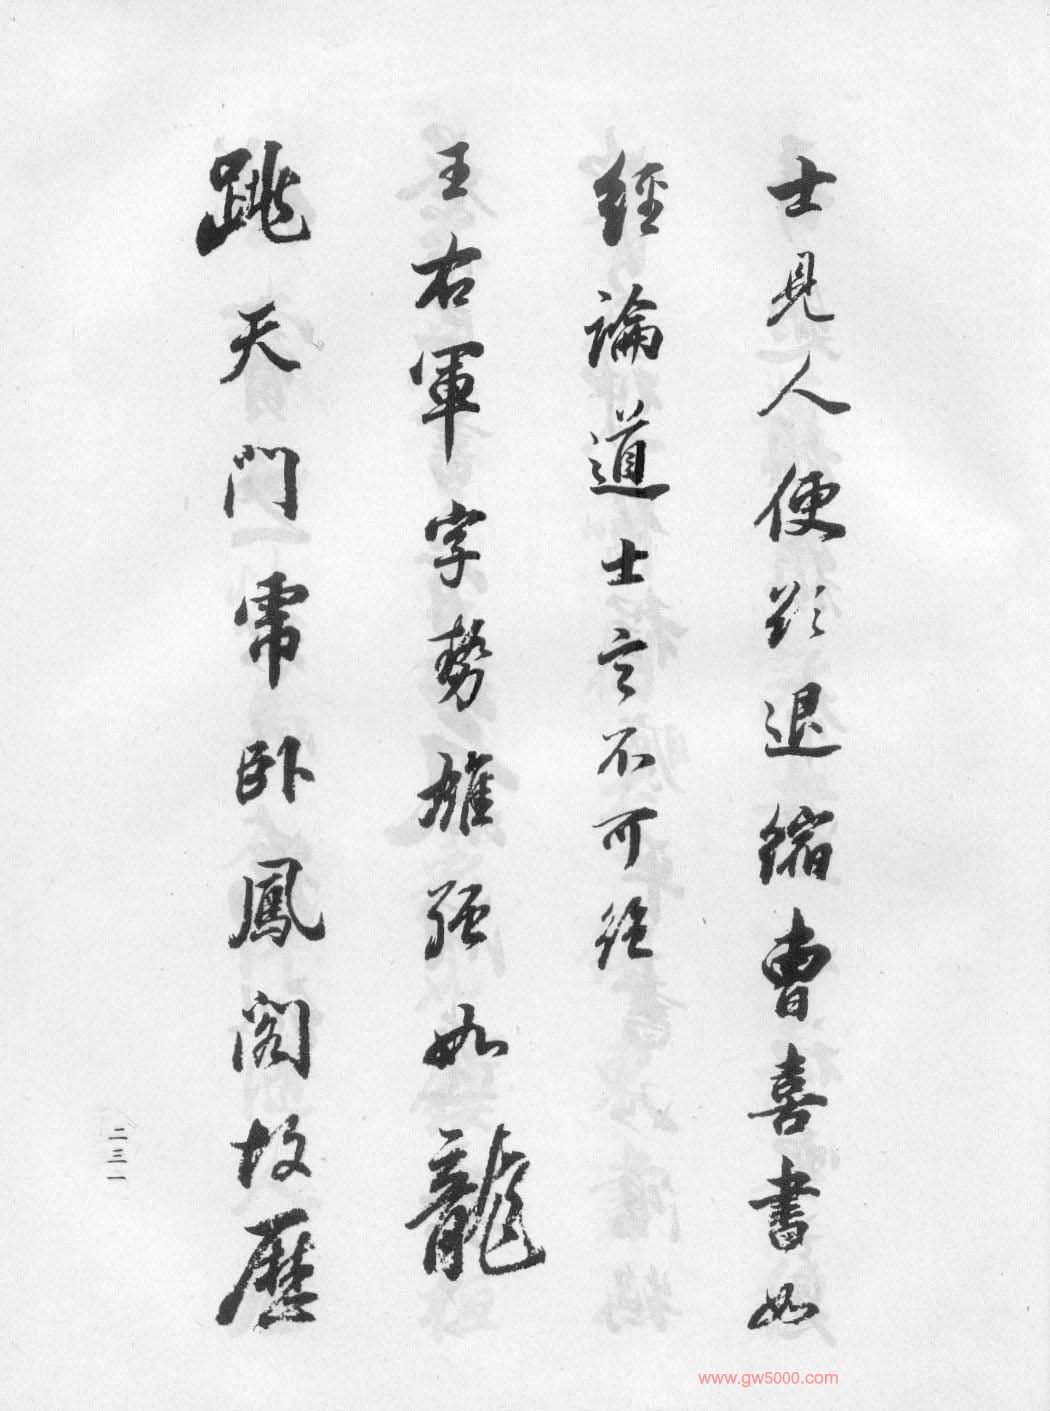 士見人便欲退縮曹喜書如
經論道士言不可絕
王右軍字勢雄強如龍
跳天門虎臥鳳閣故歷
二三一
www.gw5000.com